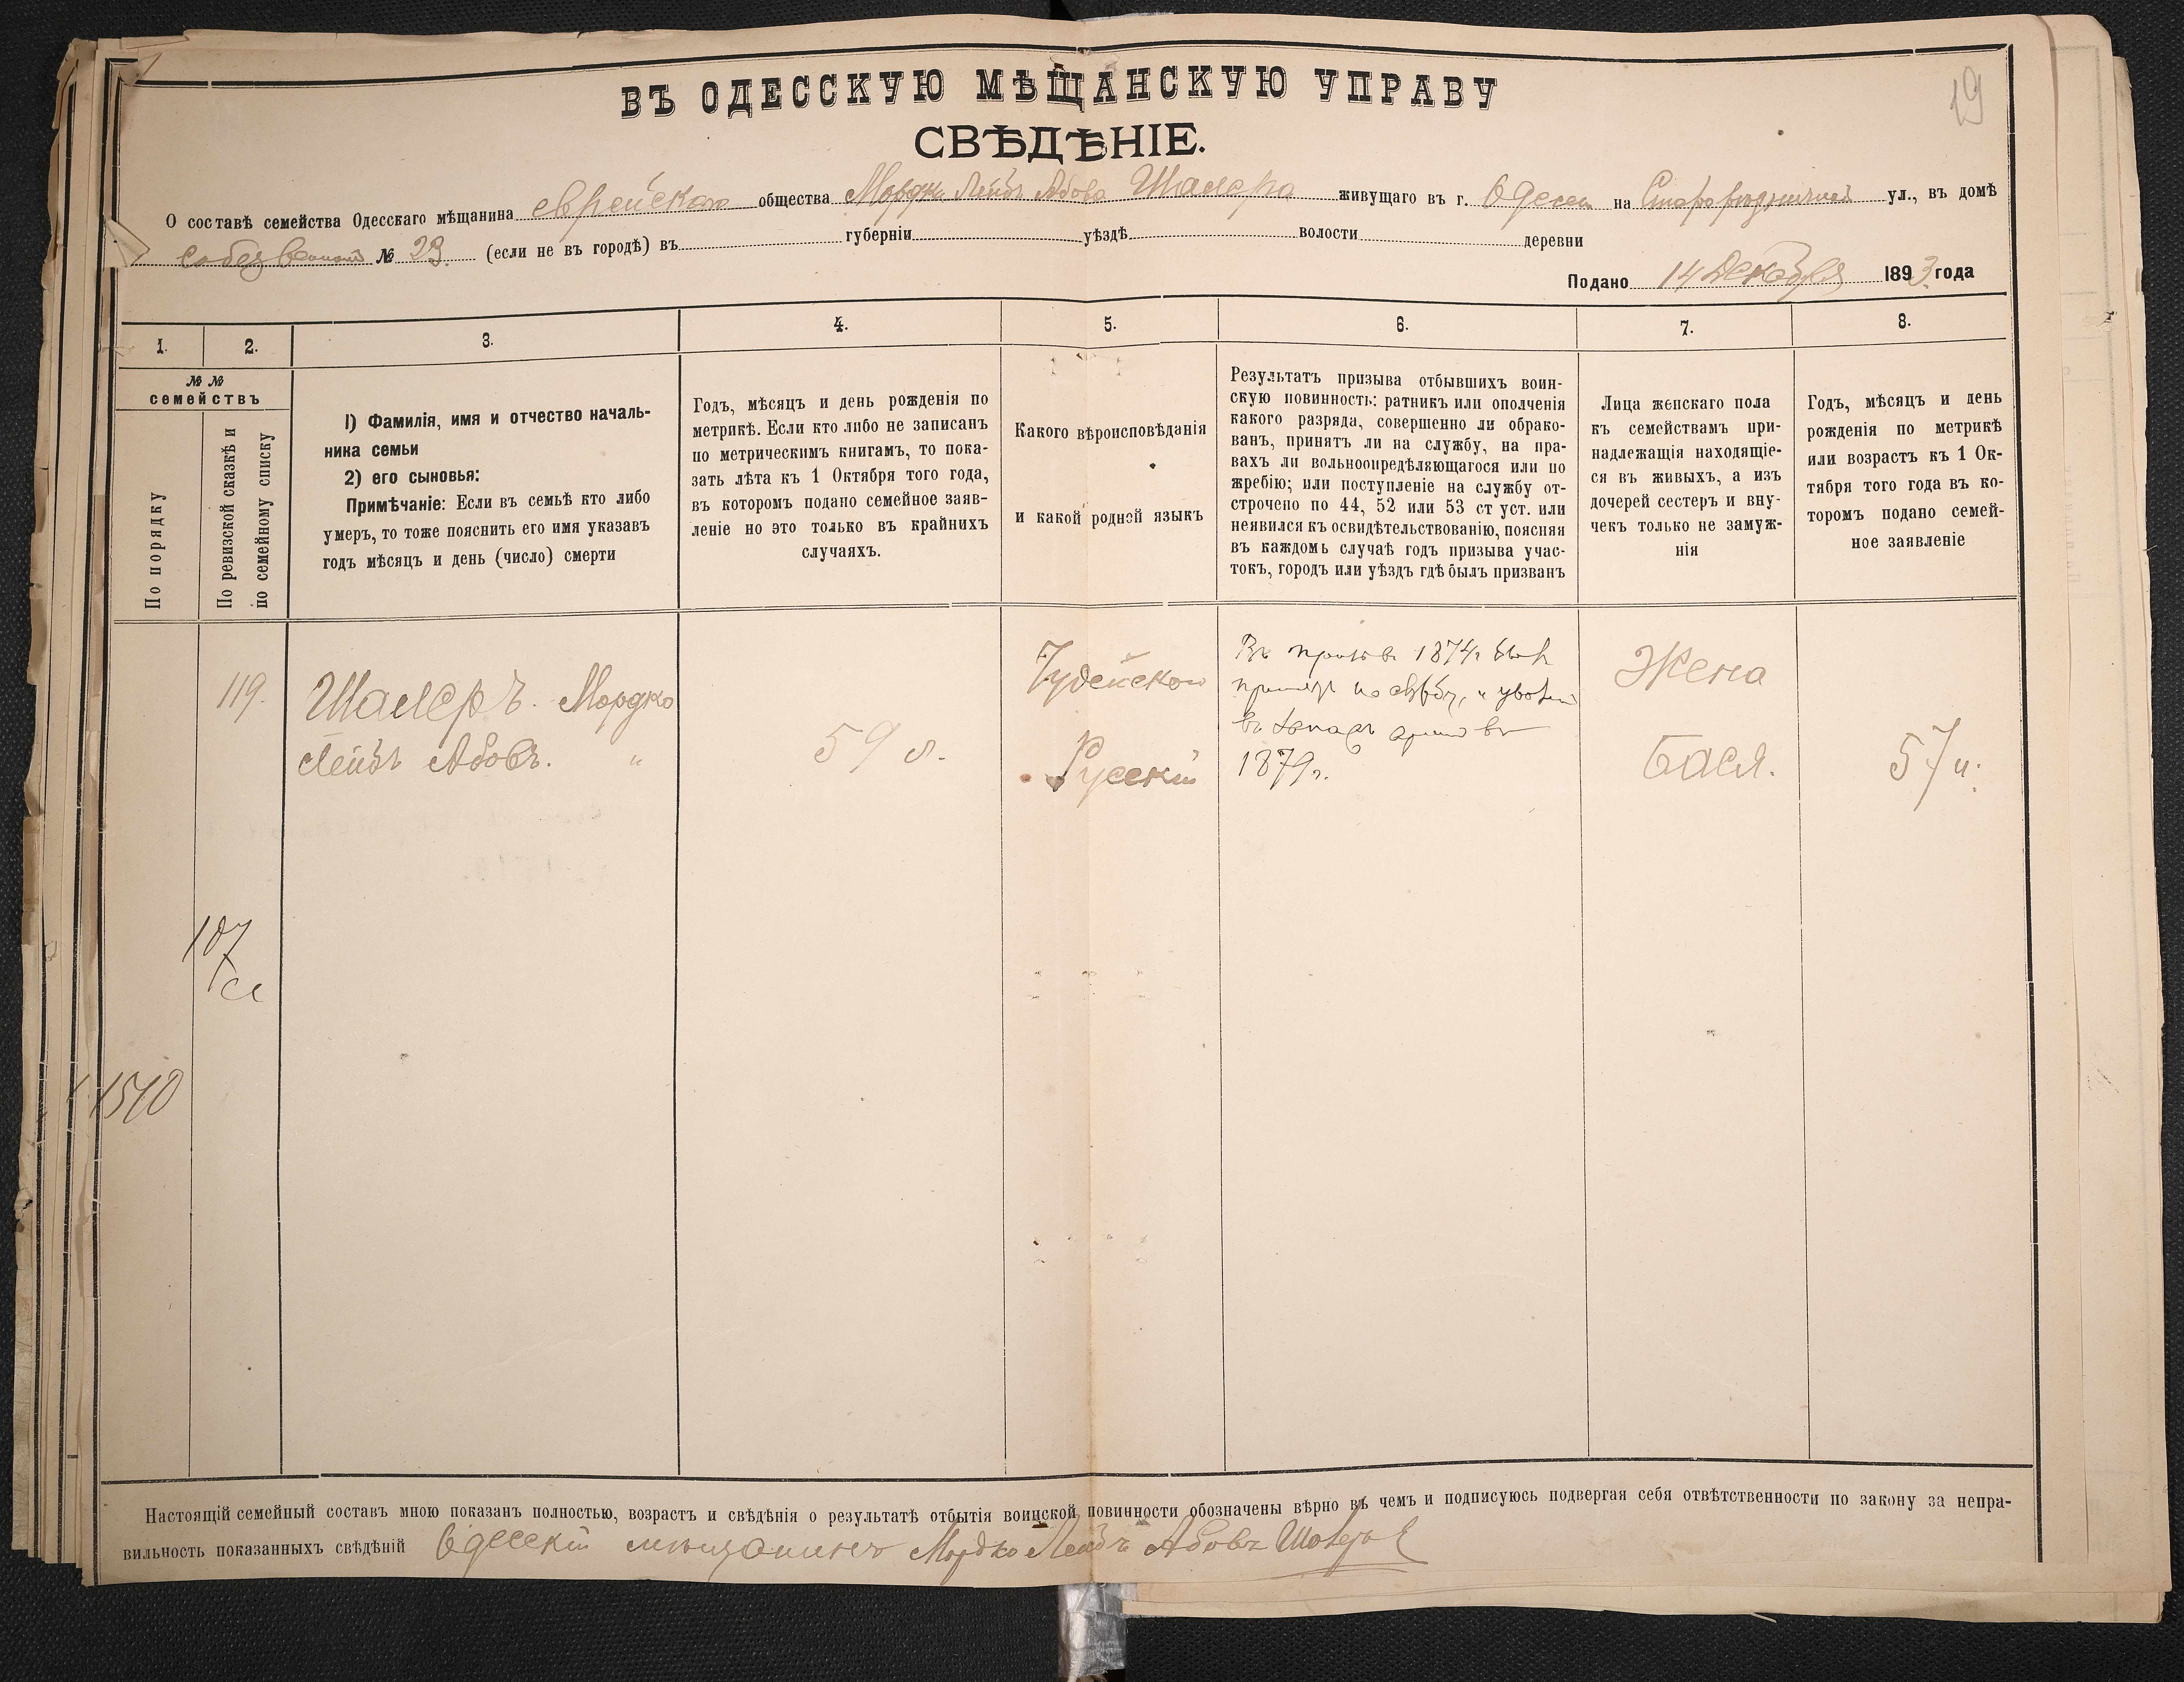 19
ВЪ ОДЕССКУЮ МѢЩАНСКУЮ УПРАВУ
СВѢДѢНІЕ.
О составѣ семейства Одесскаго мѣщанина еврейскаго общества Мордки Лейбъ Абова Шалера живущаго въ г. Одессѣ на ул., въ домѣ
№ 23. (если не въ городѣ) въ губерніи уѣздѣ волости деревни
Подано 14 Декабря 1893 года
1.
2.
3.
4.
5.
6.
7.
8.
№ №
семействъ
По порядку
По ревизской сказкѣ и
по семейному списку
1) Фамилія, имя и отчество началь-
ника семьи
2) его сыновья:
Примѣчаніе: Если въ семьѣ кто либо
умеръ, то тоже пояснить его имя указавъ
годъ мѣсяцъ и день (число) смерти
Годъ, мѣсяцъ и день рожденія по
метрикѣ. Если кто либо не записанъ
по метрическимъ книгамъ, то пока-
зать лѣта къ 1 Октября того года,
въ которомъ подано семейное заяв-
леніе но это только въ крайнихъ
случаяхъ.
Какого вѣроисповѣданія
и какой родной языкъ
Результатъ призыва отбывшихъ воин-
скую повинность: ратникъ или ополченія
какого разряда, совершенно ли обрако-
ванъ, принятъ ли на службу, на пра-
вахъ ли вольноопредѣляющагося или по
жребію; или поступленіе на службу от-
строчено по 44, 52 или 53 ст уст. или
неявился къ освидѣтельствованію, поясняя
въ каждомъ случаѣ годъ призыва учас-
токъ, городъ или уѣздъ гдѣ былъ призванъ
Лица женскаго пола
къ семействамъ при-
надлежащія находящіе-
ся въ живыхъ, а изъ
дочерей сестеръ и вну-
чекъ только не замуж-
нія
Годъ, мѣсяцъ и день
рожденія по метрикѣ
или возрастъ къ 1 Ок-
тября того года въ ко-
торомъ подано семей-
ное заявленіе
119.
Шалеръ. Мордко
Лейбъ Абовъ. "
59 л.
Іудейскаго
Русскій
Въ призывѣ 1874г. былъ
принятъ на службу, и уволенъ
въ запасъ арміи въ
1879г.
Жена
Бася.
57 л.
107
1510
Настоящій семейный составъ мною показанъ полностью, возрастъ и свѣдѣнія о результатѣ отбытія воинской повинности обозначены вѣрно въ чемъ и подписуюсь подвергая себя отвѣтственности по закону за непра-
вильность показанныхъ свѣдѣній Одесскій мѣщанинъ Мордко Лейбъ Абовъ Шалеръ